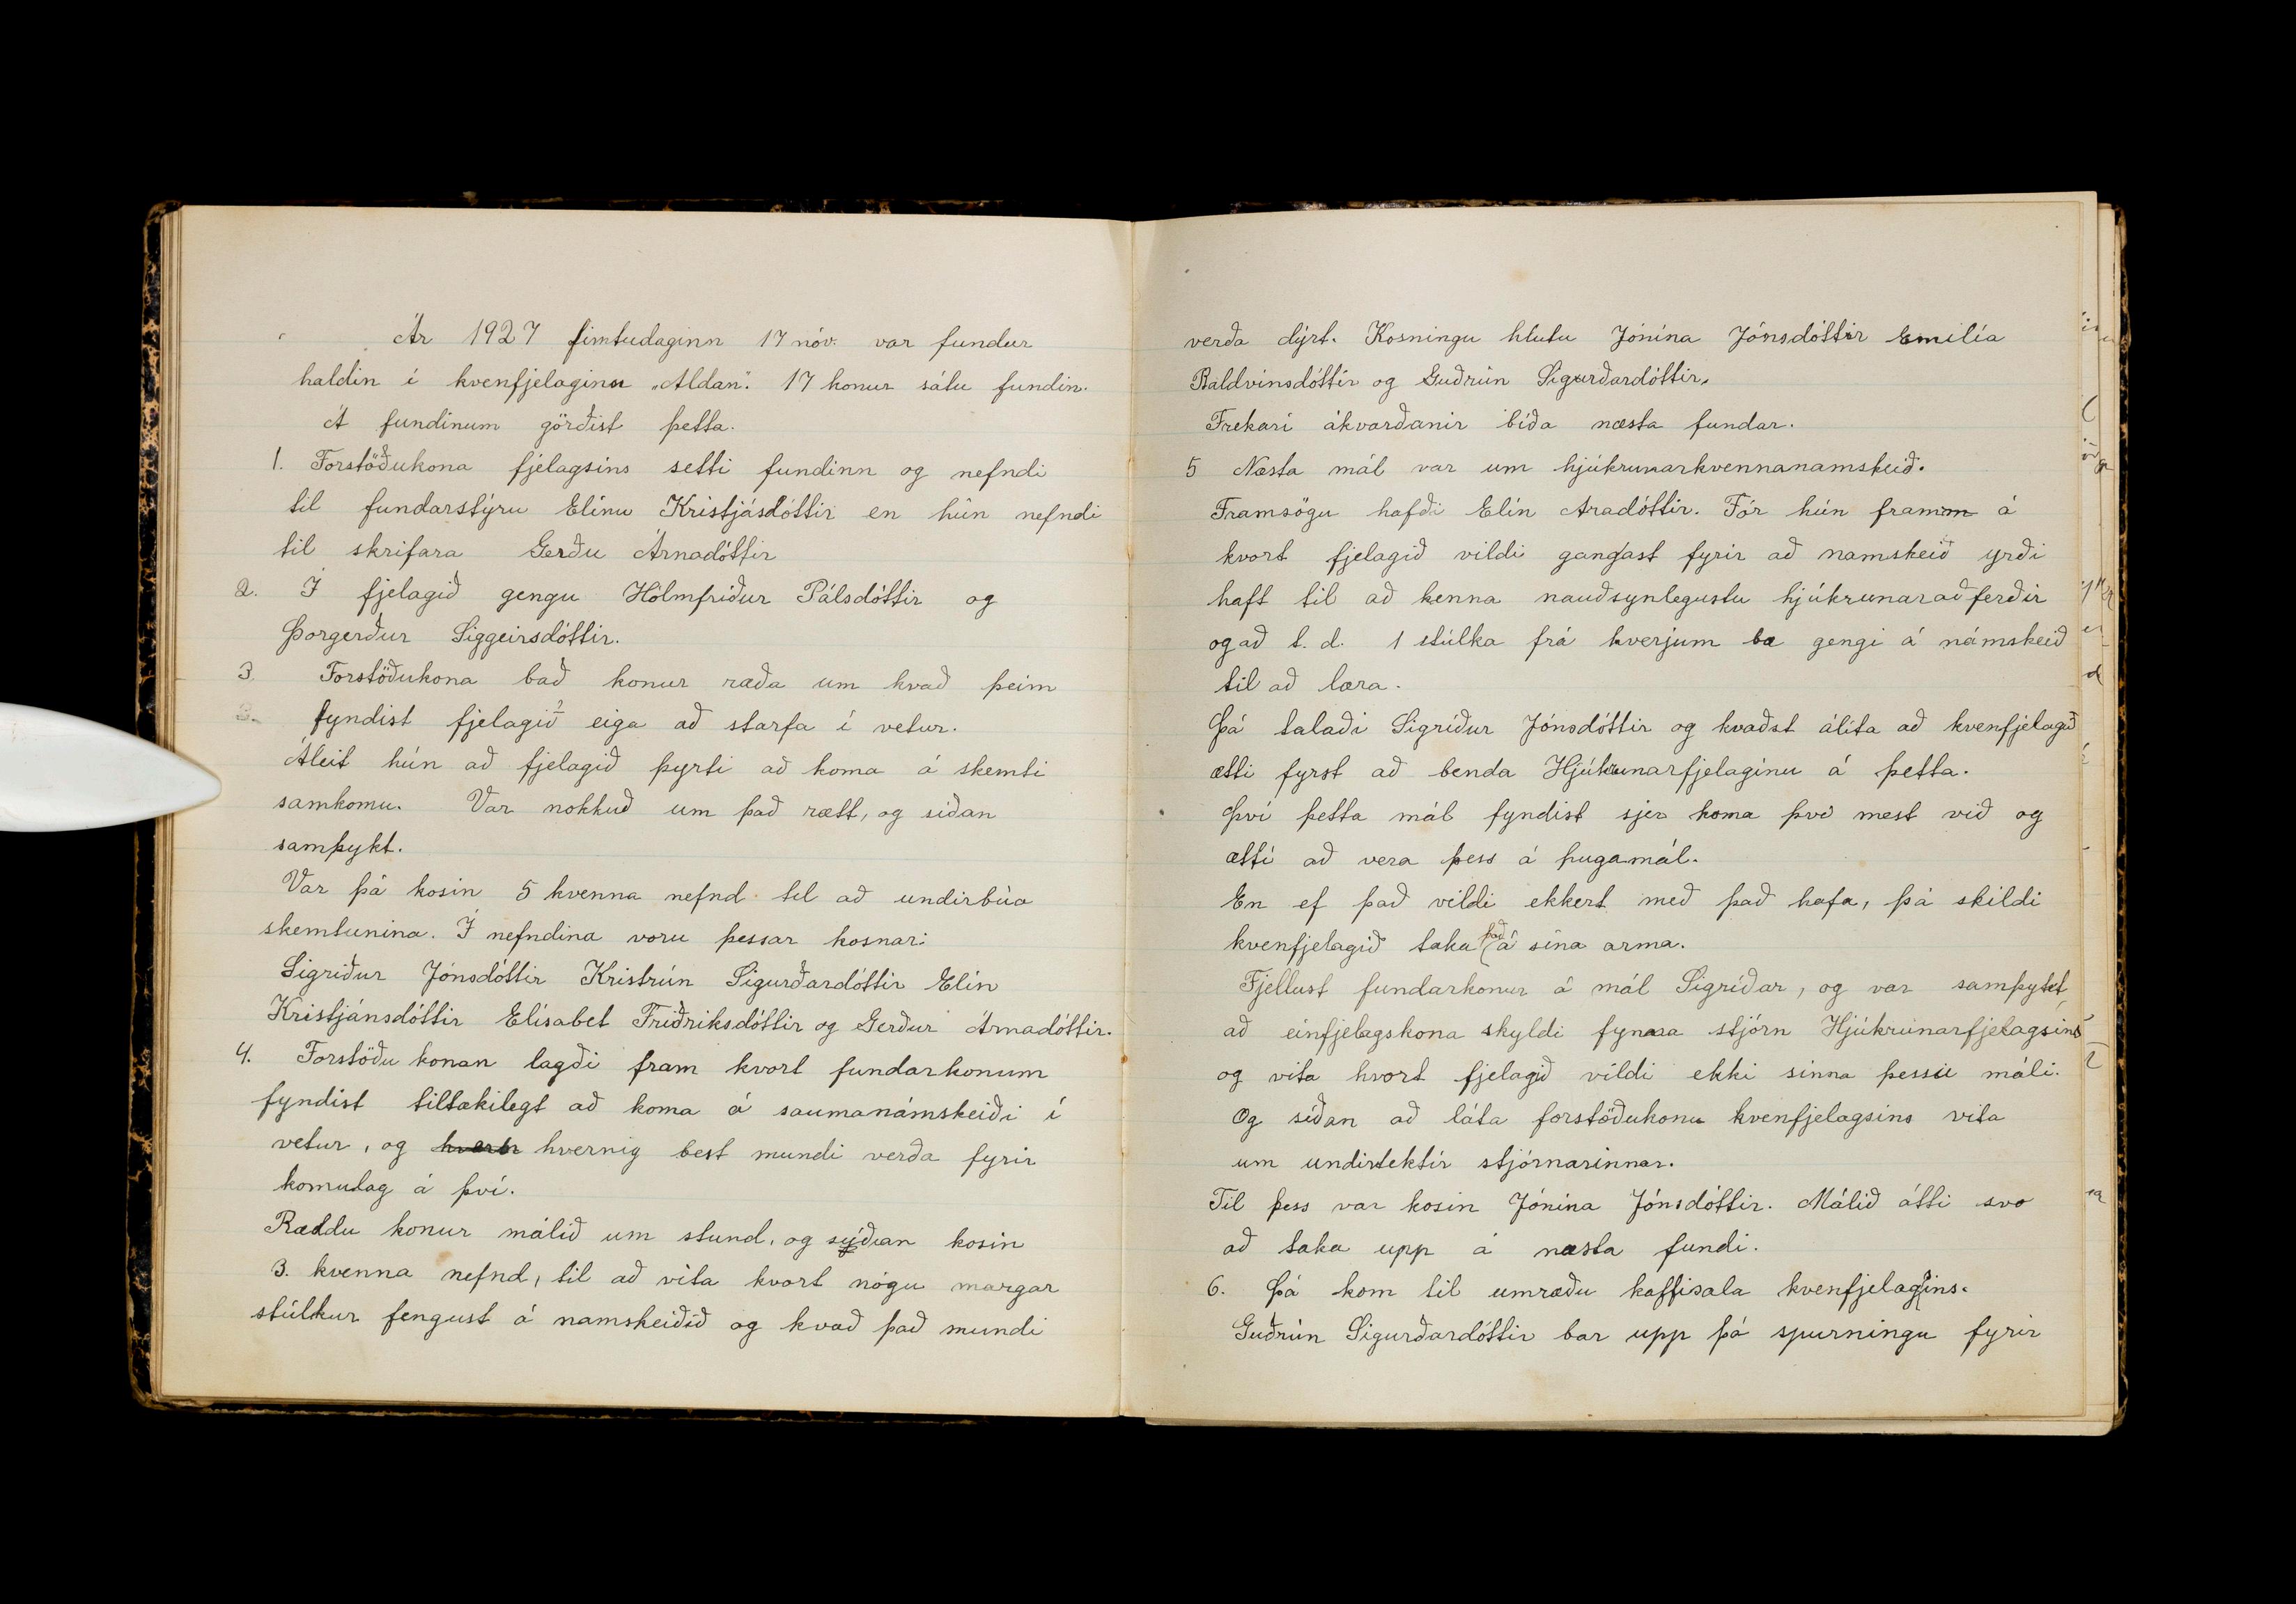 Ár 1927 fimtudaginn 17 nóv. var fundur
haldin í kvenfjelaginu „Aldan". 17 konur sátu fundin.
Á fundinum görðist þetta.
1. Forstöðukona fjelagsins setti fundinn og nefndi
til fundarstýru Elínu Kristjásdóttir en hún nefndi
til skrifara Gerðu Árnadóttir
2. Í fjelagið gengu Hólmfríður Pálsdóttir og
Þorgerður Siggeirsdóttir.
3. Forstöðukona bað konur ræða um hvað þeim
fyndist fjelagið eiga að starfa í vetur.
Áleit hún að fjelagið þyrti að koma á skemti
samkomu. Var nokkuð um það rætt, og síðan
samþykt.
Var þá kosin 5 kvenna nefnd til að undirbúa
skemtunina. Í nefndina voru þessar kosnar:
Sigríður Jónsdóttir Kristrún Sigurðardóttir Elín
Kristjánsdóttir Elísabet Friðriksdóttir og Gerður Árnadóttir.
4. Forstöðu konan lagði fram hvort fundarkonum
fyndist tiltækilegt að koma á saumanámskeiði í
vetur, og hvernig best mundi verða fyrir
komulag á því.
Ræddu konur málið um stund, og síðan kosin
3. kvenna nefnd, til að vita hvort nógu margar
stúlkur fengust á namskeiðið og hvað það mundi
verða dýrt. Kosningu hlutu Jónína Jónsdóttir Emilía
Baldvinsdóttir og Guðrún Sigurðardóttir.
Frekari ákvarðanir bíða næsta fundar.
5 Næsta mál var um hjúkrunarkvennanamskeið.
Framsögu hafði Elín Aradóttir. Fór hún framm á
hvort fjelagið vildi gangast fyrir að namskeið yrði
haft til að kenna nauðsynlegustu hjúkrunaraðferðir
og að t. d. 1 stúlka frá hverjum bæ gengi á námskeið
til að læra.
Þá talaði Sigríður Jónsdóttir og kvaðst álíta að kvenfjelagið
ætti fyrst að benda Hjúkrunarfjelaginu á þetta.
Því þetta mál fyndist sjer koma því mest við og
ætti að vera þess á hugamál.
En ef það vildi ekkert með það hafa, þá skildi
kvenfjelagið taka það á sína arma.
Fjellust fundarkonur á mál Sigríðar, og var samþykt
að einfjelagskona skyldi fynna stjórn Hjúkrúnarfjelagsins
og vita hvort fjelagið vildi ekki sinna þessu máli.
Og síðan að láta forstöðukonu kvenfjelagsins vita
um undirtektir stjórnarinnar.
Til þess var kosin Jónína Jónsdóttir. Málið átti svo
að taka upp á næsta fundi.
6. Þá kom til umræðu kaffisala kvenfjelagsins.
Guðrún Sigurðardóttir bar upp þá spurningu fyrir